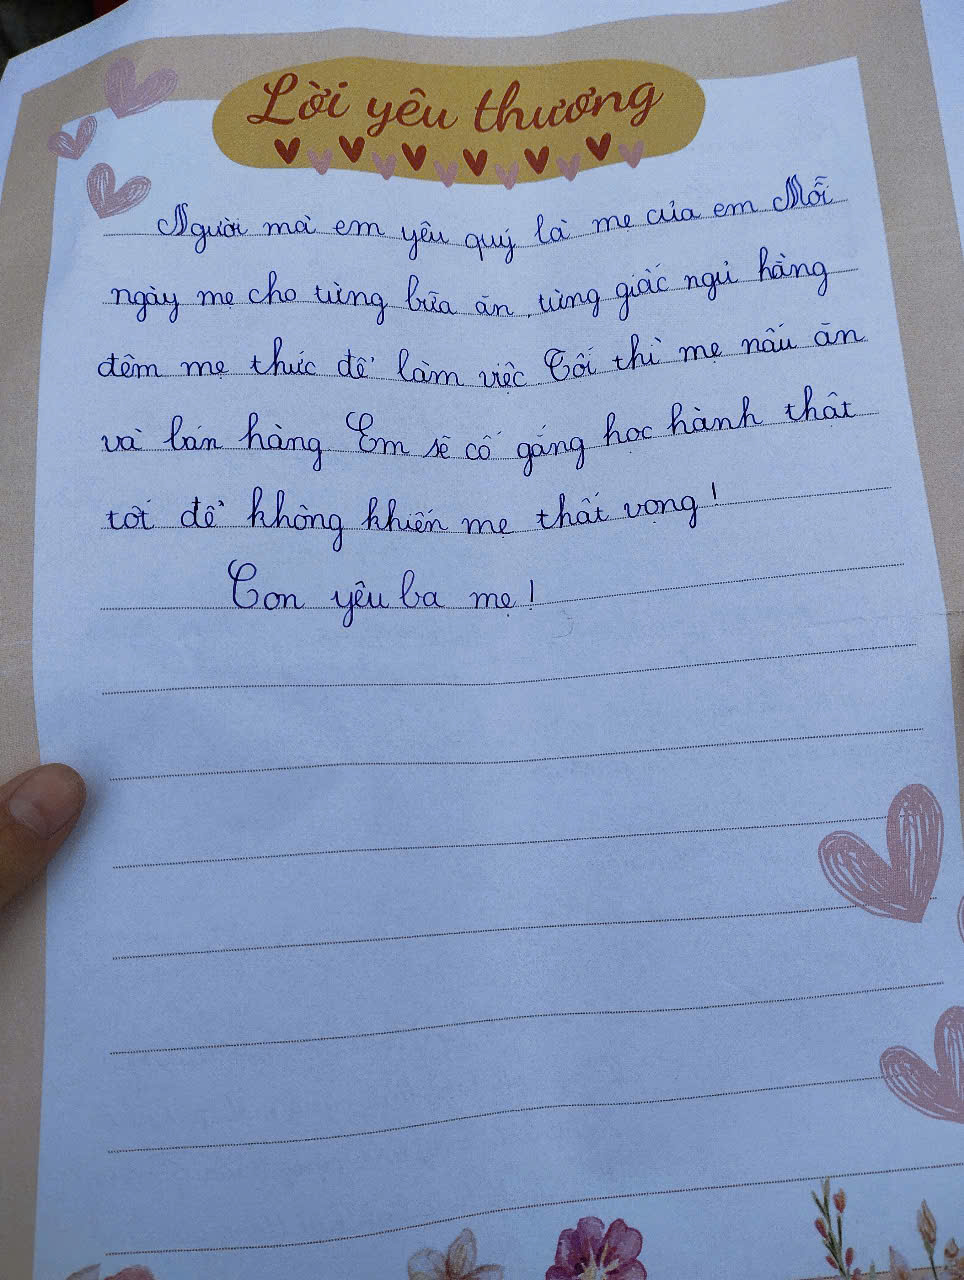 Lời yêu thương
Người mà em yêu quý là mẹ của em Mỗi
ngày mẹ cho từng bữa ăn, từng giấc ngủ hằng
đêm mẹ thức để làm việc Tối thì mẹ nấu ăn
và bán hàng Em sẽ cố gắng học hành thật
tốt để không khiến mẹ thất vọng!
Con yêu ba mẹ!